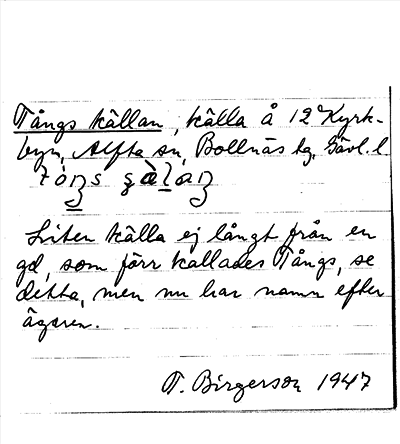 Tångs källan, källa å 12 Kyrk-
byn, Alfta sn, Bollnäs tg, Gävl. l
Liten källa ej långt från en
gd, som förr kallades Tångs, se
detta, men nu har namn efter
ägaren.
T. Birgerson 1947